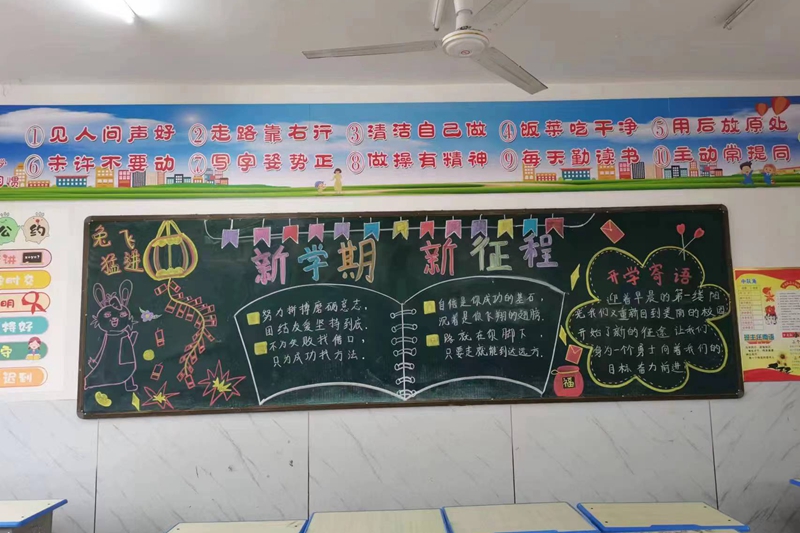 ①见人问声好 ②走路靠右行 ③清洁自己做 ④饭菜吃干净 ⑤用后放原处
⑥未许不要动 ⑦写字姿势正 ⑧做操有精神 ⑨每天勤读书 ⑩主动常提问
公约
兔飞
猛进
新学期 新征程
努力拼搏磨砺意志,
团结友爱坚持到底.
不为失败找借口,
只为成功找方法.
自信是你成功的基石,
沉着是你飞翔的翅膀,
路就在你脚下,
只要走就能到达远方.
福
开学寄语
迎着早晨的第一缕阳
光我们又重新回到美丽的校园
开始了新的征途 让我们
身为一个勇士向着我们的
目标 奋力前进
班主任寄语